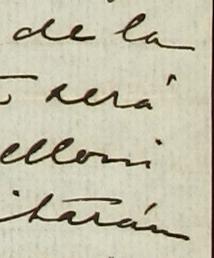 de la
será
elloni
itarán